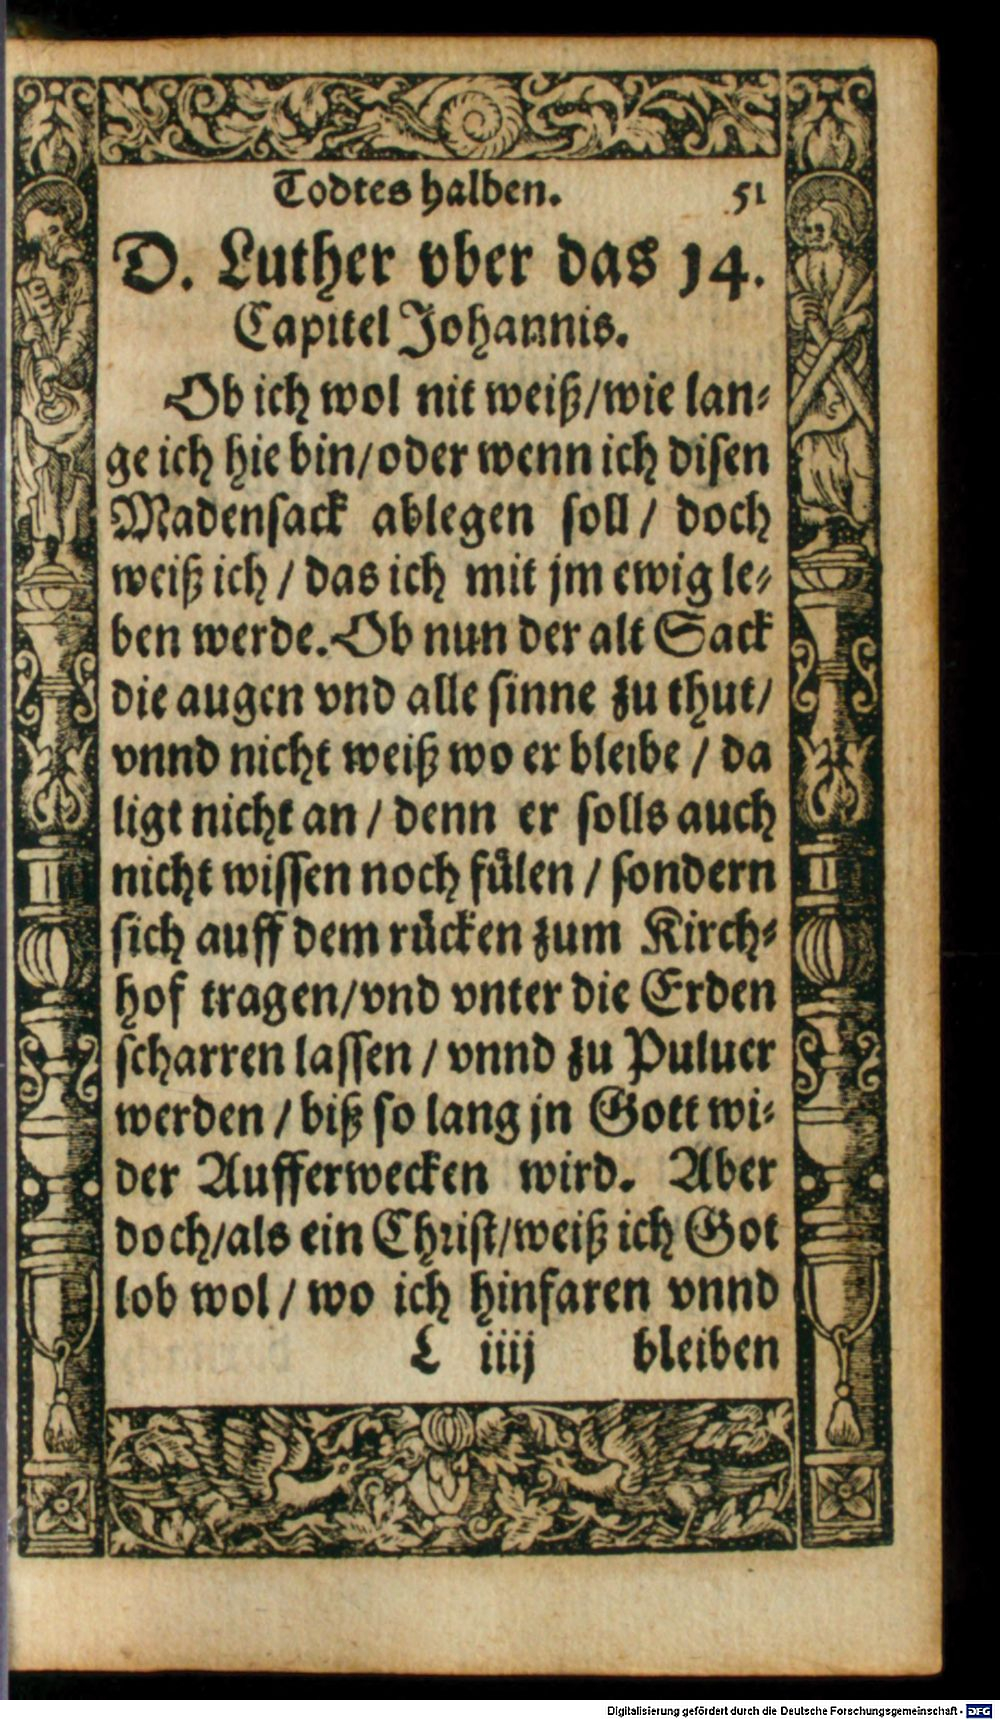 Todtes halben. 51
D. Luther vber das 14.
Capitel Johannis.
Ob ich wol nit weiß/wie lan-
ge ich hie bin/oder wenn ich disen
Madensack ablegen soll/ doch
weiß ich / das ich mit jm ewig le-
ben werde. Ob nun der alt Sack
die augen vnd alle sinne zu thut/
vnnd nicht weiß wo er bleibe / da
ligt nicht an / denn er solls auch
nicht wissen noch fülen / sondern
sich auff dem rücken zum Kirch-
hof tragen/vnd vnter die Erden
scharren lassen / vnnd zu Puluer
werden / biß so lang jn Gott wi-
der Aufferwecken wird. Aber
doch/als ein Christ/weiß ich Got
lob wol / wo ich hinfaren vnnd
L iiij bleiben
Digitalisierung gefördert durch die Deutsche Forschungsgemeinschaft - DFG